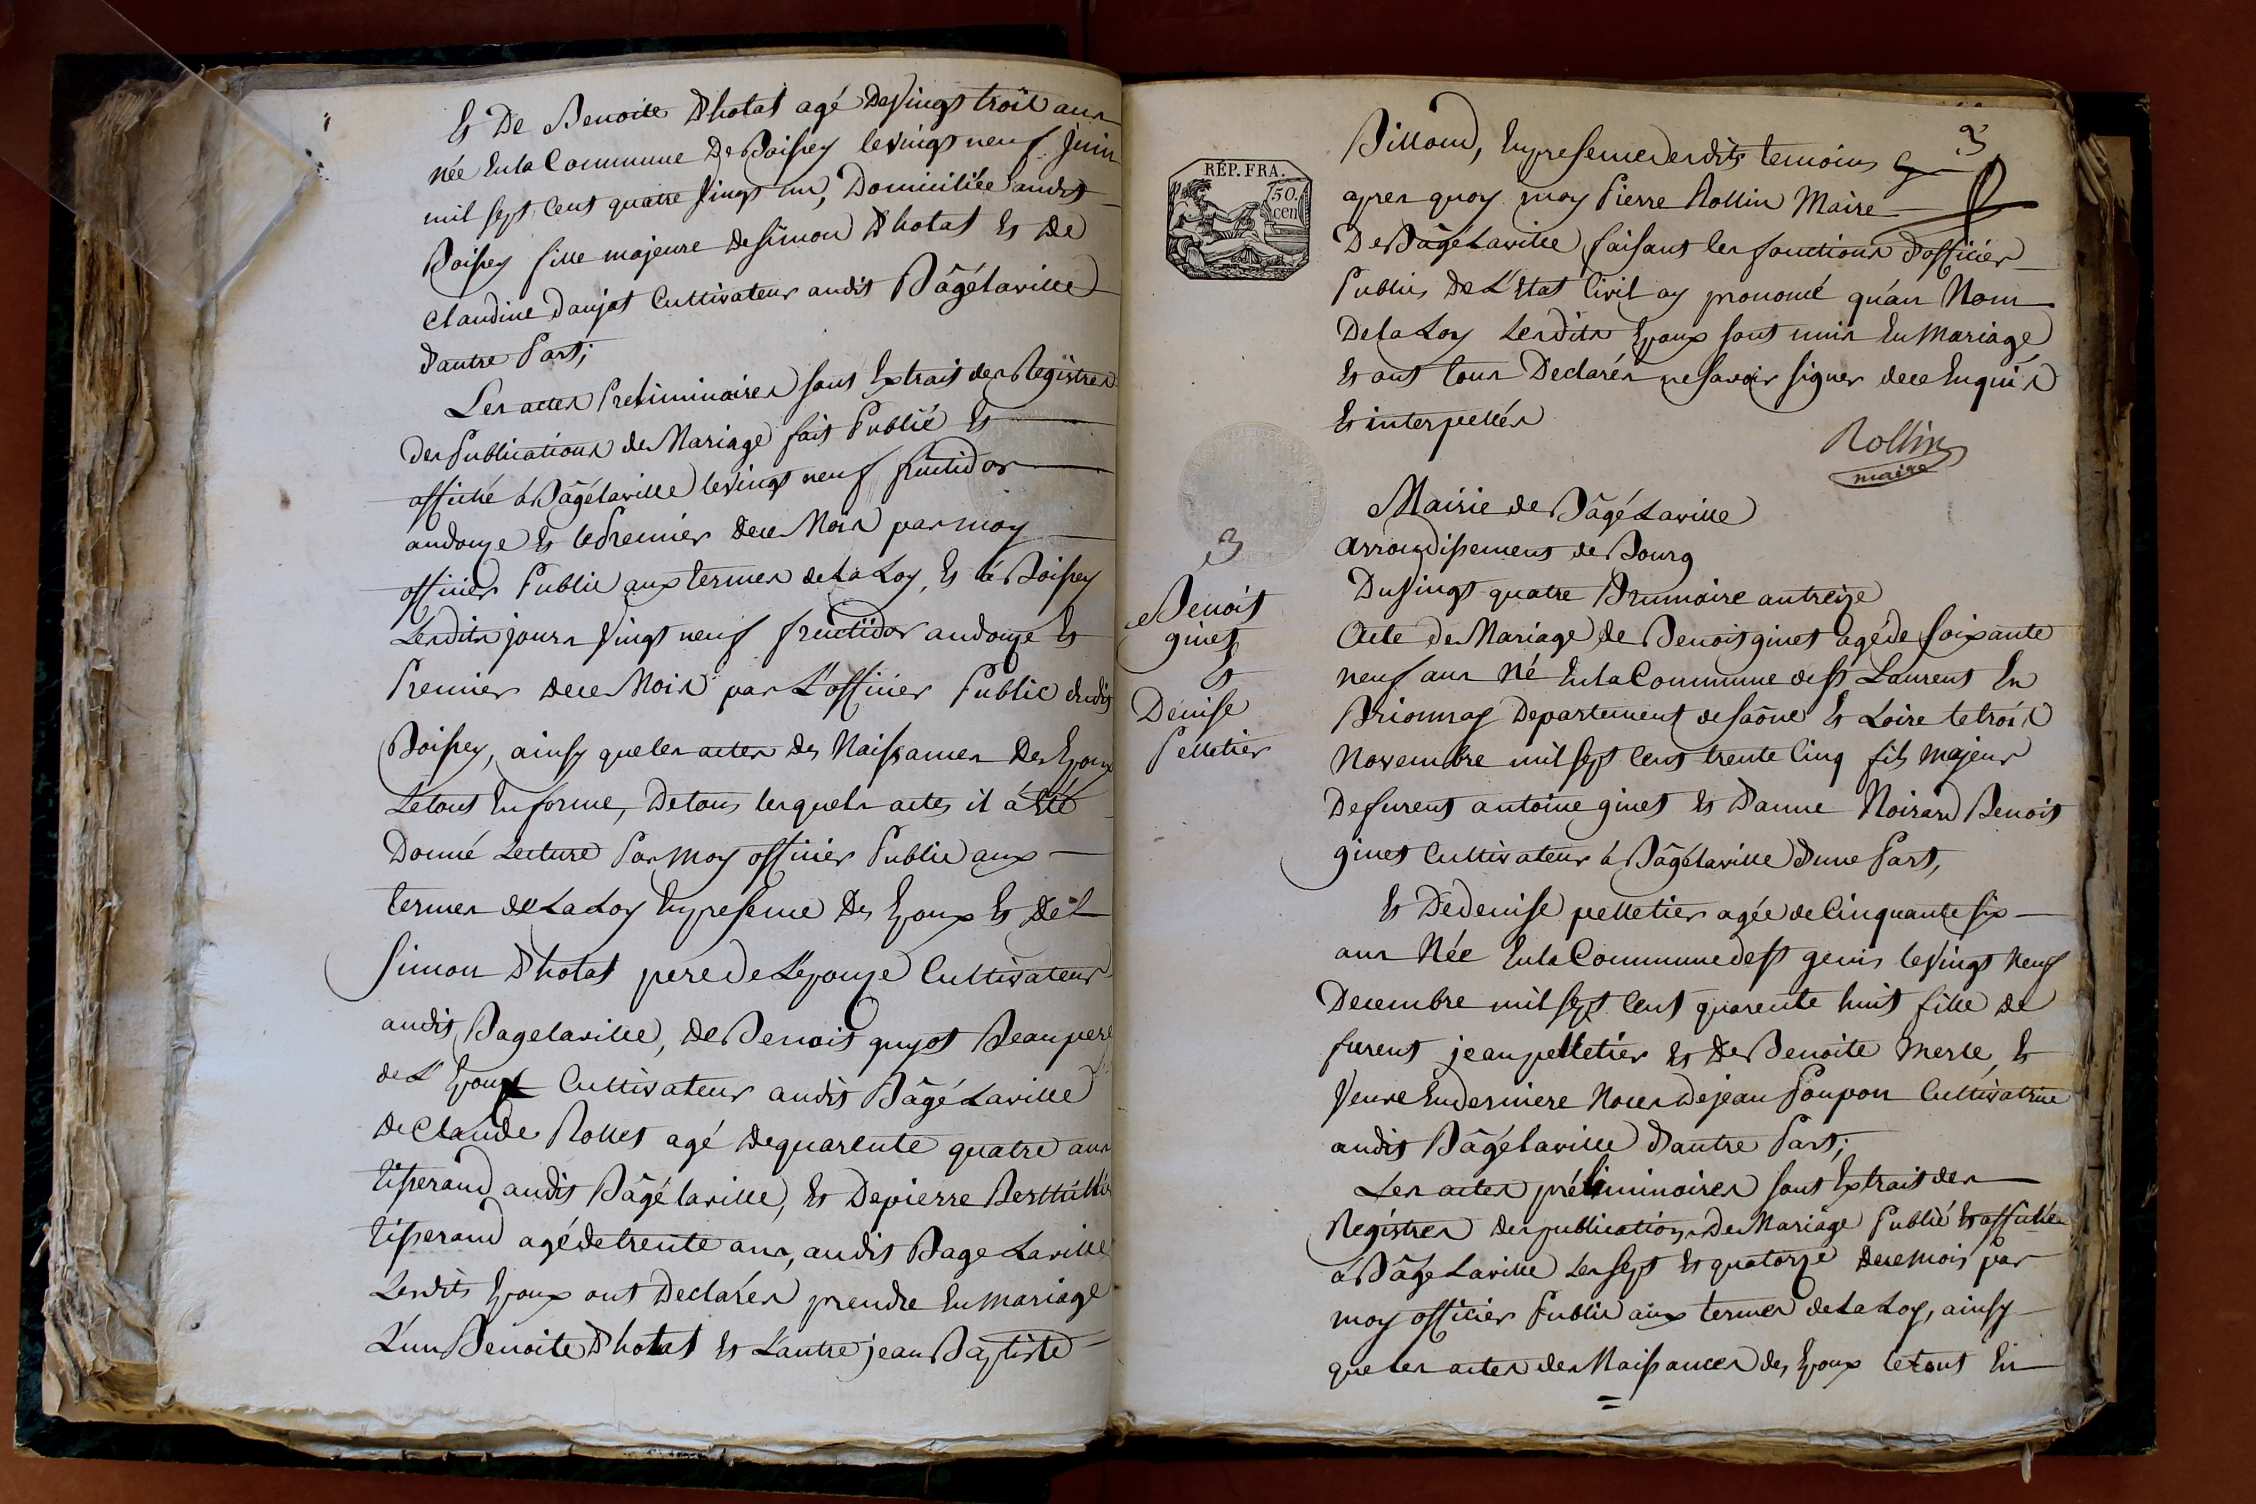 Et De Benoite Dhotat agé De Vingt trois ans
née En la Commune De Boissey le vingt neuf Juin
mil sept Cent quatre Vingt un, Domiciliée audit
Boissey fille majeure de Simon Dhotat Et De
Claudine Danjat Cultivateur audit Bâgélaville
D'autre Part;
Les actes Preliminaires sont Extrait des Régistres
Des Publications de Mariage fait Publié Et
affiché à Bâgélaville le vingt neuf fructidor
an douze Et le Premier de ce Mois par moy
officier Public aux termes de La Loy, Et à Boissey
Lesdits jours Vingt neuf fructidor an douze Et
Premier de ce Mois par L'officier Public dudit
Boissey, ainsy que les actes de Naissances Des Epoux
Le tout En forme, De tous lesquels actes il à Eté
Donné Lecture Par Moy officier Public aux
termes de La Loy En presence Des Epoux Et De
Simon Dhotat pere de L'epouze Cultivateur
audit Bagelaville, de Benoit guyot Beaupere
de L'Epoux Cultivateur audit Bâgé Laville
De Claude Rollet agé de quarente quatre ans
tisserand audit Bâgé laville, Et De pierre
tisserand agé de trente ans, audit Bage Laville
Lesdits Epoux ont Declarés prendre En mariage
L'un Benoite Dhotat Et L'autre jean Baptiste
3
RÉP. FRA.
50.
cen
Billoud, En presence desdits temoins
apres quoy moy Pierre Rollin Maire
De Bâgé Laville faisant les fonctions D'officier
Public De L'Etat Civil ay pronomé qu'au Nom
De la Loy Lesdits Epoux sont unis En Mariage
Et ont tous Declarés ne savoir signer de ce Enquis
Et interpellés
Rollin
maire
3
Benoit
ginet
Et
Denise
Pelletier
Mairie de Bâgé Laville
Arrondissement de Bourg
Du Vingt quatre Brumaire an treize
Acte de Mariage de Benoit ginet agé de soixante
neuf ans Né En la Commune de St Laurent En
Brionnay Departement de Saône Et Loire le trois
Novembre mil sept Cent trente Cinq fils Majeur
Defurent antoine ginet Et D'anne Noirard Benoit
ginet Cultivateur à Bâgélaville D'une Part,
Et De denise pelletier agée de Cinquante six
ans Née En la Commune de St genis le Vingt Neuf
Decembre mil sept Cent quarente huit fille de
furent jean pelletier Et De Benoite Merle, Et
Veuve En derniere Noces de jean Poupon Cultivatrice
audit Bâgélaville D'autre Part;
Les actes préliminaires sont Extrait des
Régistres des publications De Mariage Publié Et affichés
à Bâgé Laville Les sept Et quatorze de ce mois par
moy officier Public aux termes de La Loy, ainsy
que les actes des Naissances des Epoux le tout En